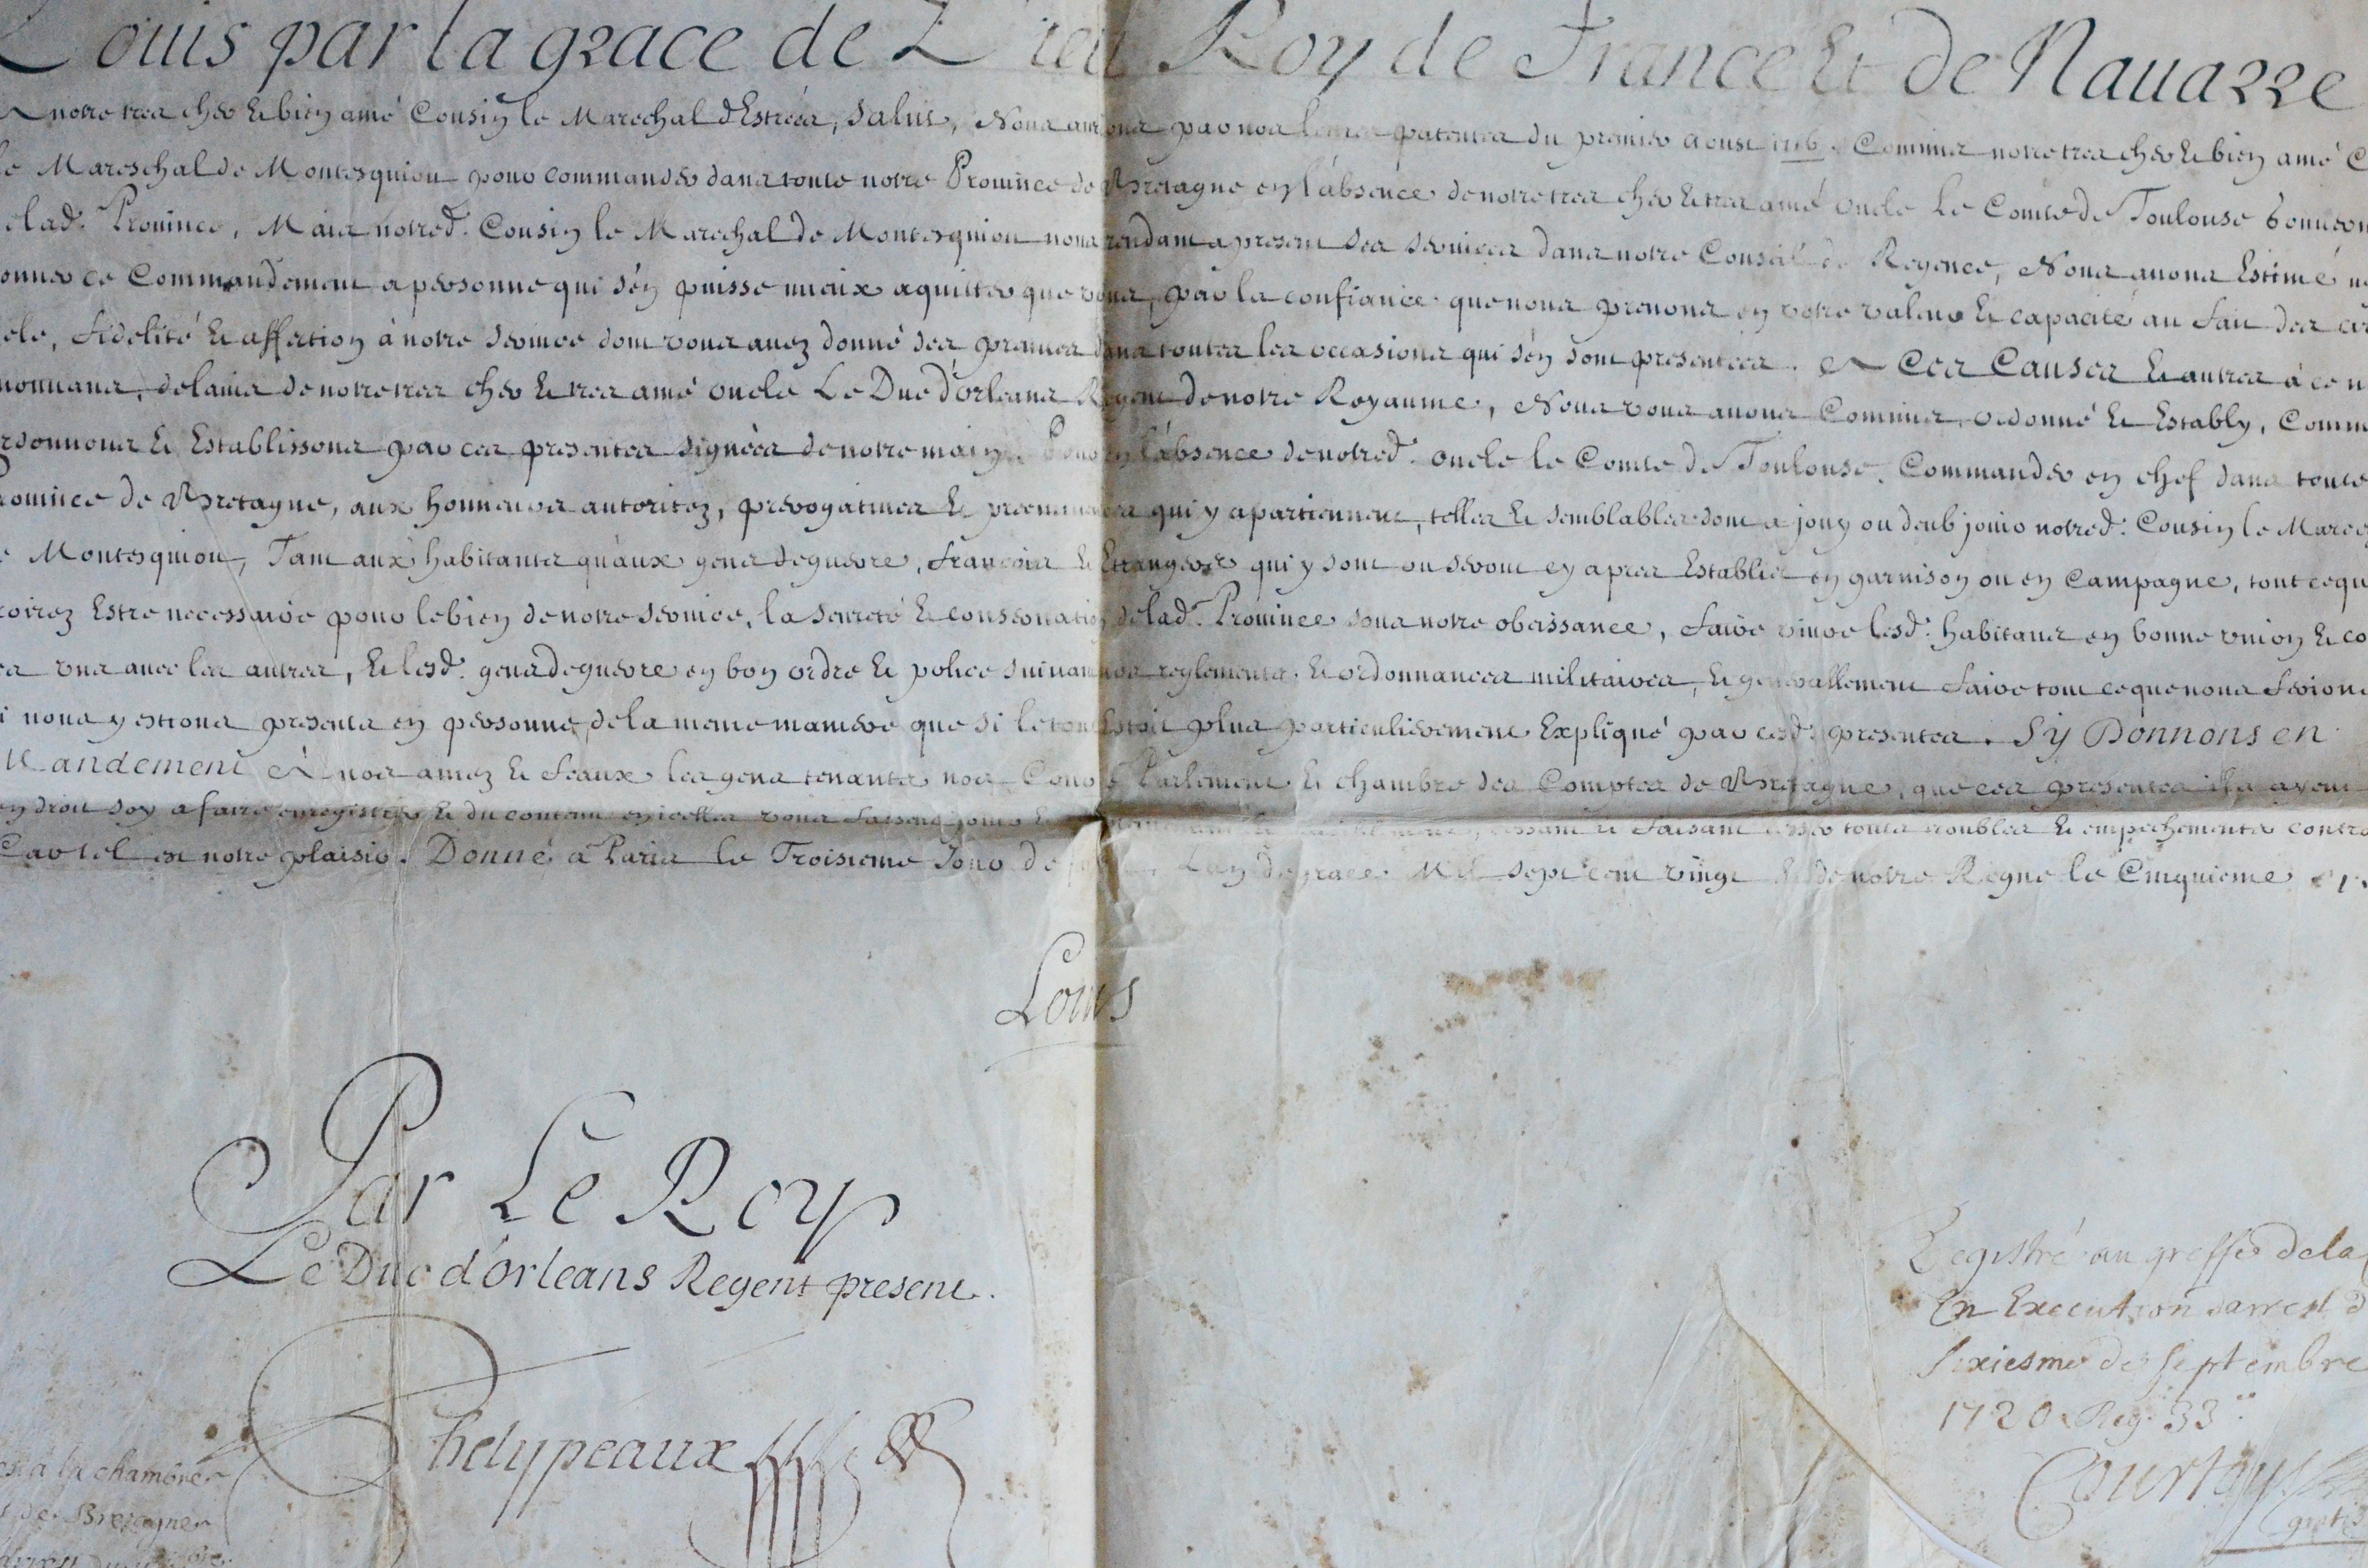 Louis par la grace de Dieu Roy de France Et de Nauarre
A notre tres cher et bien amé Cousin le Marechal d'Estrées, Salut, Nous aurions par nos lettres patentes du premier aoust 1716. Commis notre tres cher et bien amé C
le Mareschal de Montesquiou pour commander dans toute notre Prouince de Bretagne en l'absence de notre tres cher et tres amé oncle Le Comte de Toulouse Gouuern
elad. Prouince, Mais notred. Cousin le Marechal de Montesquiou nous rendant a present ses seruices dans notre Conseil de Regence, Nous auons Estimé n
onner ce Commandement a personne qui s'en puisse mieux aquitter que vous, par la confiance que nous prenons en votre valeur et capacité au fait des
ele, fidelité et affection à notre seruice dont vous auez donné des preuues dans toutes les occasions qui s'en sont presentées. A Ces Causes et autres à ce n
mouuans, de lauis de notre tres cher et tres amé oncle Le Duc d'orleans Regent de notre Royaume, Nous vous auons Commis, ordonné et Estably, Comm
rdonnons et Establissons par ces presentes signées de notre main, Pour en l'absence de notred. oncle le Comte de Toulouse, Commander en chef dans toute
rouince de Bretagne, aux honneurs autoritez, prerogatiues et preeminences qui y apartiennent, telles et semblables dont a jouy ou deub jouir notred. Cousin le Marec
e Montesquiou, Tant aux habitants qu'aux gens de guerre, francois et Etrangers qui y sont ou seront cy apres Establis en garnison ou en Campagne, tout cequ
roirez Estre necessaire pour le bien de notre seruice, la seureté et conseruation delad. Prouince sous notre obeissance, faire viure lesd. habitans en bonne vnion et co
es vns auec les autres, et lesd. gens de guerre en bon ordre et police suiuant nos reglements et ordonnances militaires, et generallement faire tout ce que nous ferions
i nous y estions presents en personne, de la meme maniere que si le tout Estoit plus particulierement Expliqué par cesd. presentes. Sy Donnons en
Mandement A nos amez et feaux les gens tenants nos Cour de Parlement et chambre des Comptes de Bretagne, que ces presentes ils ayent
en droit soy a faire enregistrer et du contenu en icelles vous faissent jouir et cessant et faisant cesser tous troubles et empechements contr
Car tel est notre plaisir. Donné à Paris le Troisieme Jour de Lan de grace Mil sept cent vingt et de notre Regne le Cinquieme
Louis
Par Le Roy
Le Duc d'orleans Regent present.
Phelypeaux
Registré au greffe de la
En Execution darrest d
sixiesme de septembre
1720 Reg. 33
Courtoys
gratis
à la chambre
de Bretagne